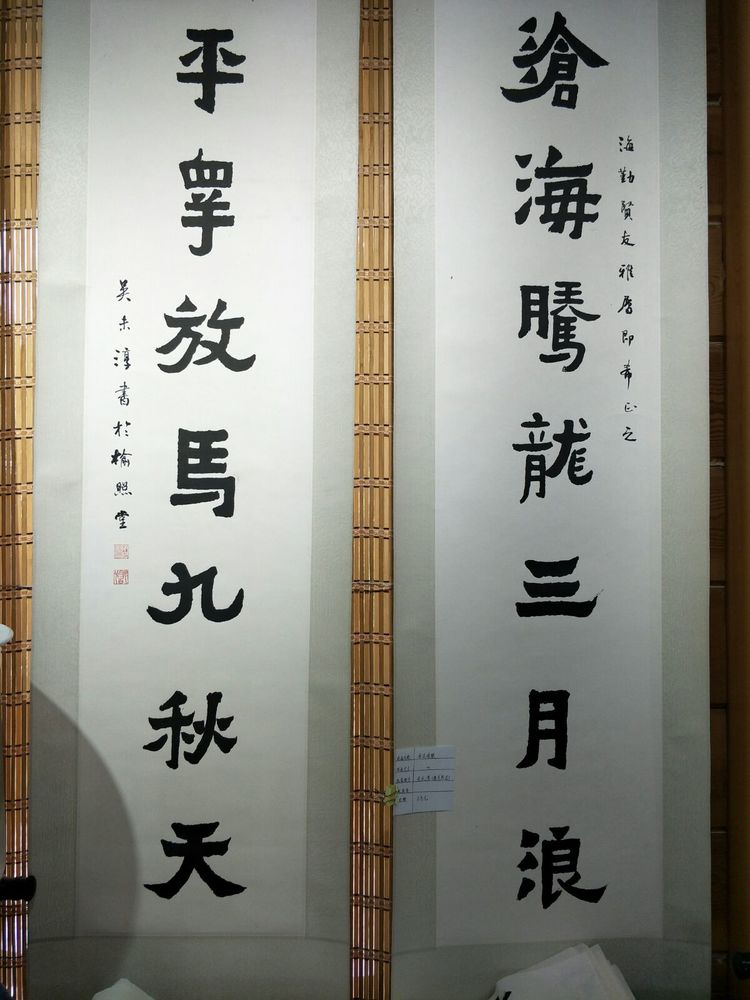 滄海騰龍三月浪
海勤賢友雅屬即希正之
平睾放馬九秋天
吴未淳書於榆照堂